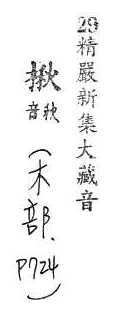 29精嚴新集大藏音
揪音秋(木部.P724)